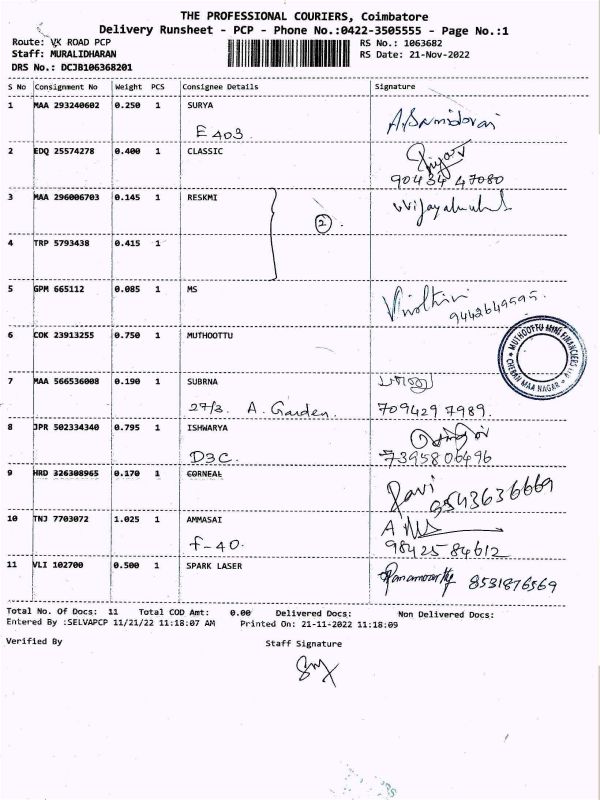 THE PROFESSIONAL COURIERS, Coimbatore
Delivery Runsheet - PCP - Phone No.:0422-3505555 - Page No.:1
Route: VK ROAD PCP RS No.: 1063682
Staff: MURALIDHARAN RS Date: 21-Nov-2022
DRS No.: DCJB106368201
S No Consignment No Weight PCS Consignee Details Signature
1 MAA 293240602 0.250 1 SURYA
E 403.
2 EDQ 25574278 0.400 1 CLASSIC
90434 47080
3 MAA 296006703 0.145 1 RESKMI
2
4 TRP 5793438 0.415 1
5 GPM 665112 0.085 1 MS
9442649595.
6 COK 23913255 0.750 1 MUTHOOTTU
MUTHOOTTU MINI FINANCIERS
CHERAN MAA NAGAR
7 MAA 566536008 0.190 1 SUBRNA
27/3. A. Garden. 709429 7989.
8 JPR 502334340 0.795 1 ISHWARYA
D3C. 7395806496
9 HRD 326308965 0.170 1 CORNEAL
Ravi
9543636669
10 TNJ 7703072 1.025 1 AMMASAI
F-40. 98425 84612
11 VLI 102700 0.500 1 SPARK LASER
8531876569
Total No. Of Docs: 11 Total COD Amt: 0.00 Delivered Docs: Non Delivered Docs:
Entered By :SELVAPCP 11/21/22 11:18:07 AM Printed On: 21-11-2022 11:18:09
Verified By Staff Signature